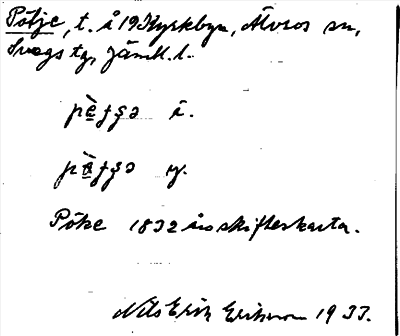 Pötje, t. å 19 Kyrkbyn, Älvros sn,
Svegs tg, Jämtl. l.
i.
y.
Pöke 1832 års skifteskarta.
Nils Erik Erikson 1933.